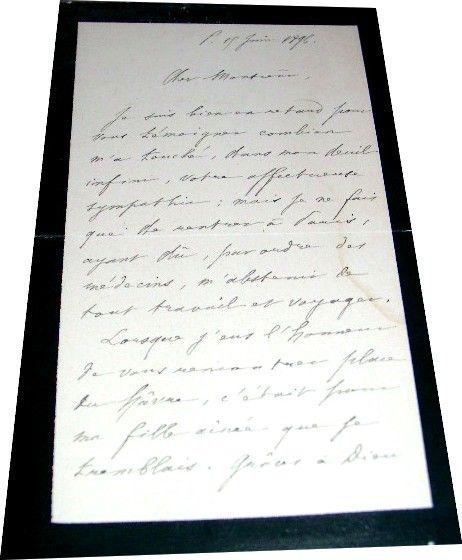 P. 15 Juin 1896.
Cher Monsieur,
Je suis bien en retard pour
vous témoigner combien
m'a touché, dans mon deuil
infini, votre affectueuse
sympathie ; mais je ne fais
que de rentrer à Paris,
ayant dû, par ordre des
médecins, m'abstenir de
tout travail et voyager.
Lorsque j'eus l'honneur
de vous rencontrer place
du Hâvre, c'était pour
ma fille ainée que je
tremblais. Grâces à Dieu